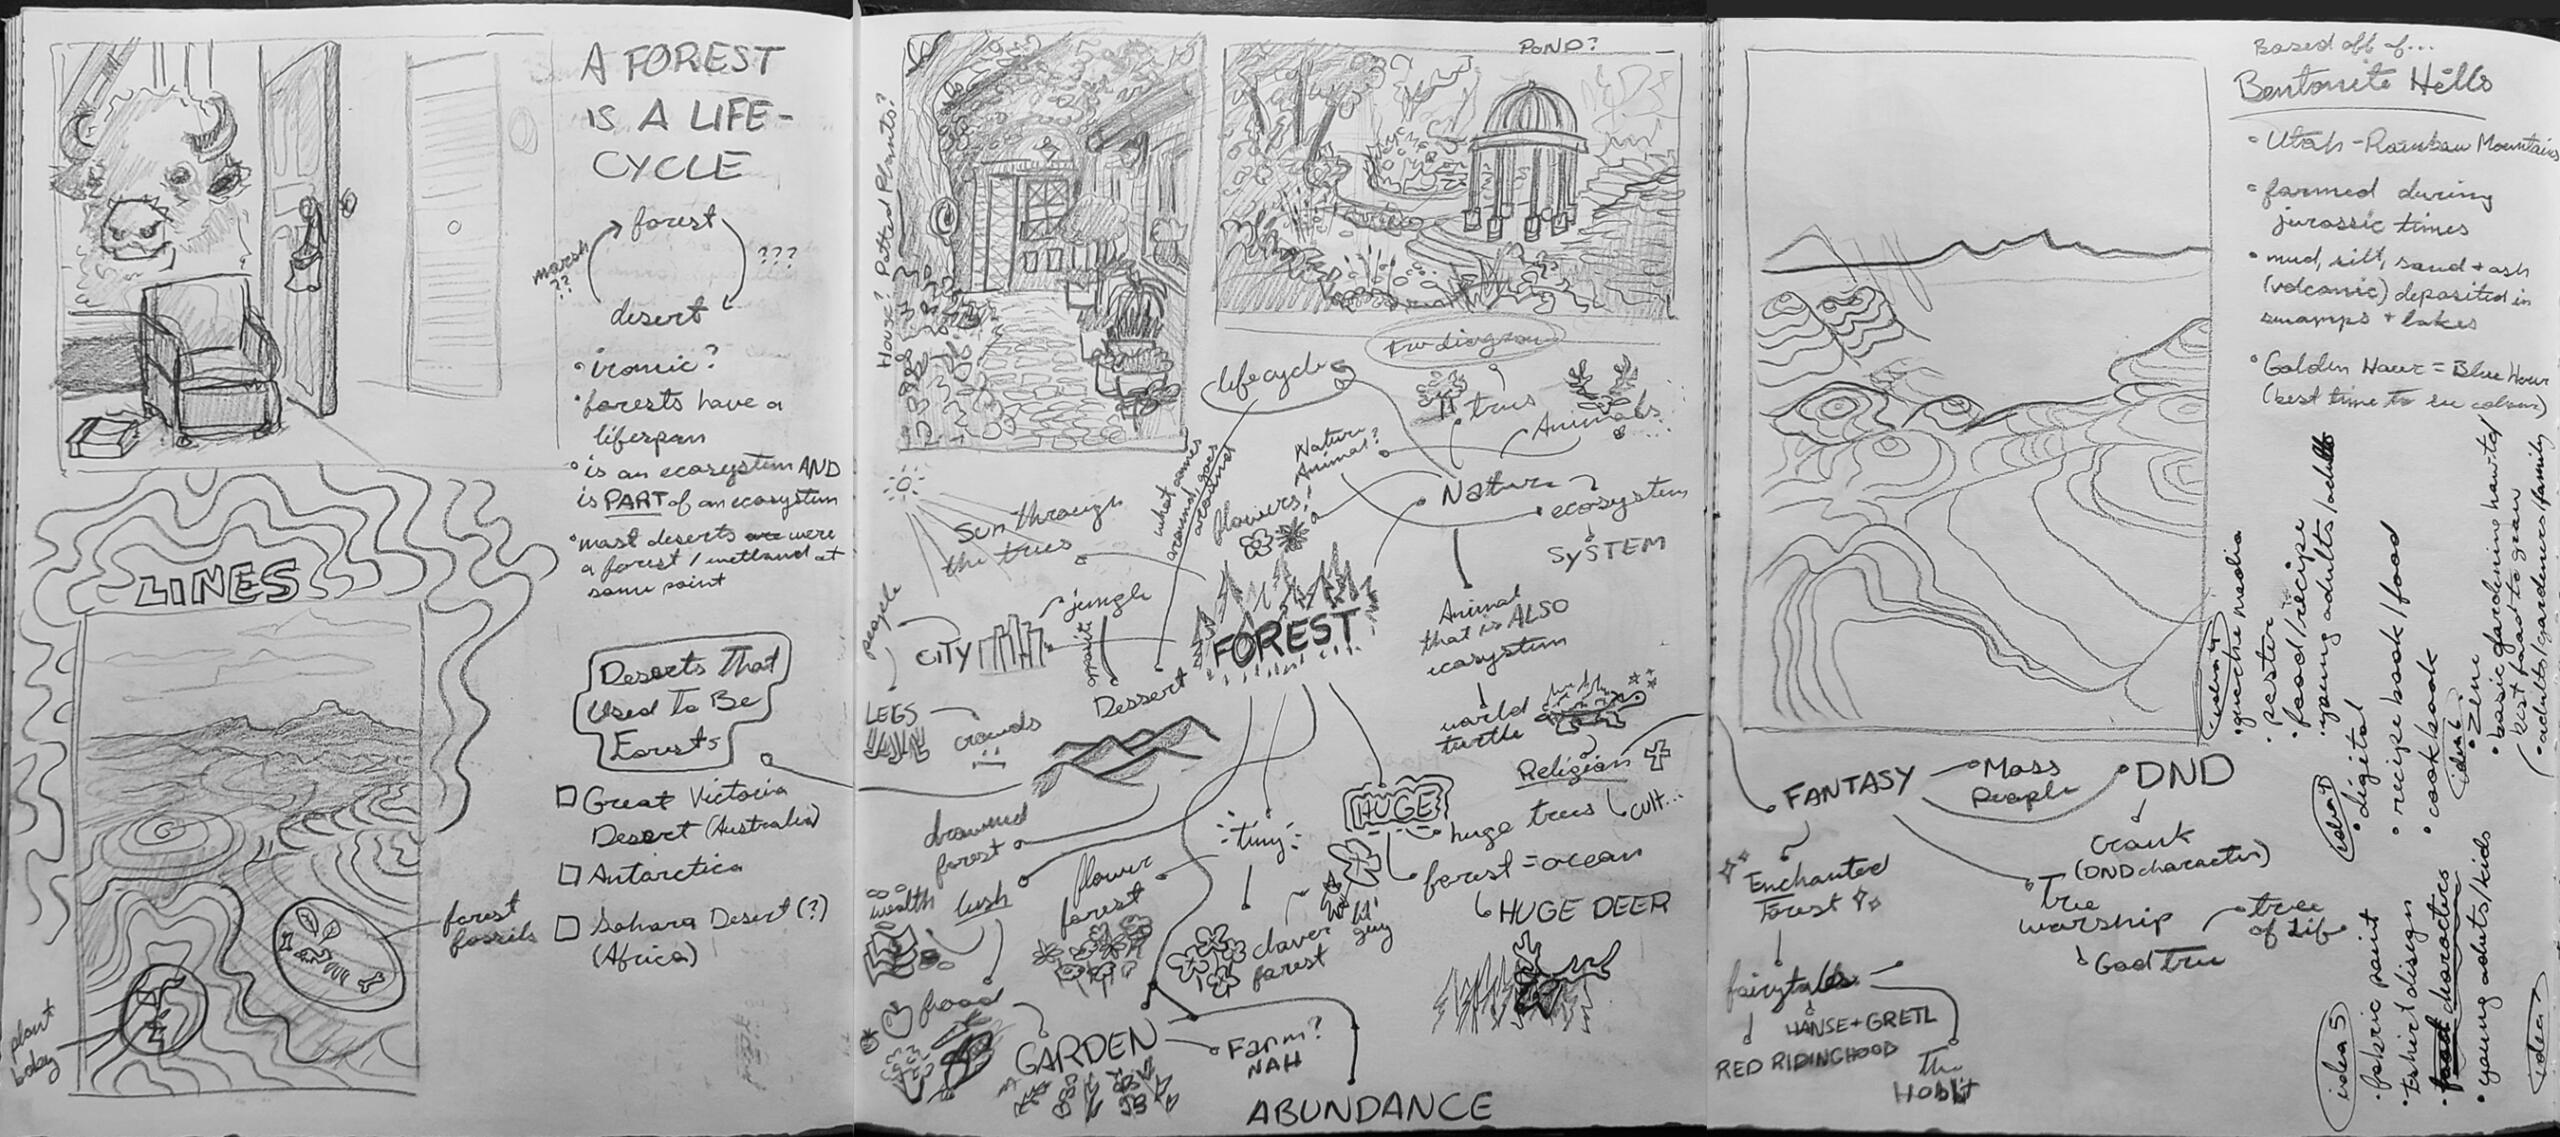 A FOREST
IS A LIFE-
CYCLE
forest
marsh
??
???
desert
• ironic?
• forests have a
lifespan
• is an ecosystem AND
is PART of an ecosystem
• most deserts are were
a forest / wetland at
some point
LINES
Deserts That
Used To Be
Forests
Great Victoria
Desert (Australia)
Antarctica
Sahara Desert (?)
(Africa)
forest
fossils
plant
baby
House? Potted Plants?
POND?
lifecycle
trees
Animals
Nature
Animal?
what comes
around, goes
around
flowers!
Nature
ecosystem
SYSTEM
Sun through
the trees
people
CITY
jungle
opposite
FOREST
Dessert
Animal
that is ALSO
ecosystem
world
turtle
LEGS
crowds
Religion
cult...
HUGE
huge trees
forest = ocean
HUGE DEER
drowned
forest
tiny
wealth
lush
flower
forest
clover
forest
lil'
guy
food
GARDEN
Farm?
NAH
ABUNDANCE
Based off of...
Bentonite Hills
• Utah - Rainbow Mountains
• formed during
jurassic times
• mud, silt, sand + ash
(volcanic) deposited in
swamps + lakes
• Golden Hour = Blue Hour
(best time to see colour)
FANTASY
Moss
People
DND
Cronk
(DND character)
Enchanted
Forest
Tree
worship
tree
of Life
God Tree
fairytales
HANSE + GRETL
RED RIDINGHOOD
The
Hobbit
• guache media
• poster
• food/recipe
• young adults/adults
• digital
• recipe book / food
• cookbook
idea 6
• zine
• basic gardening how to
• adults/gardeners/family
idea 5
• fabric paint
• tshirt design
• food characters
• young adults/kids
idea